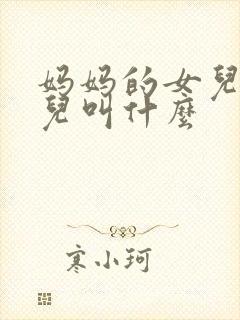 妈妈的女兒
兒叫什麼
寒小珂